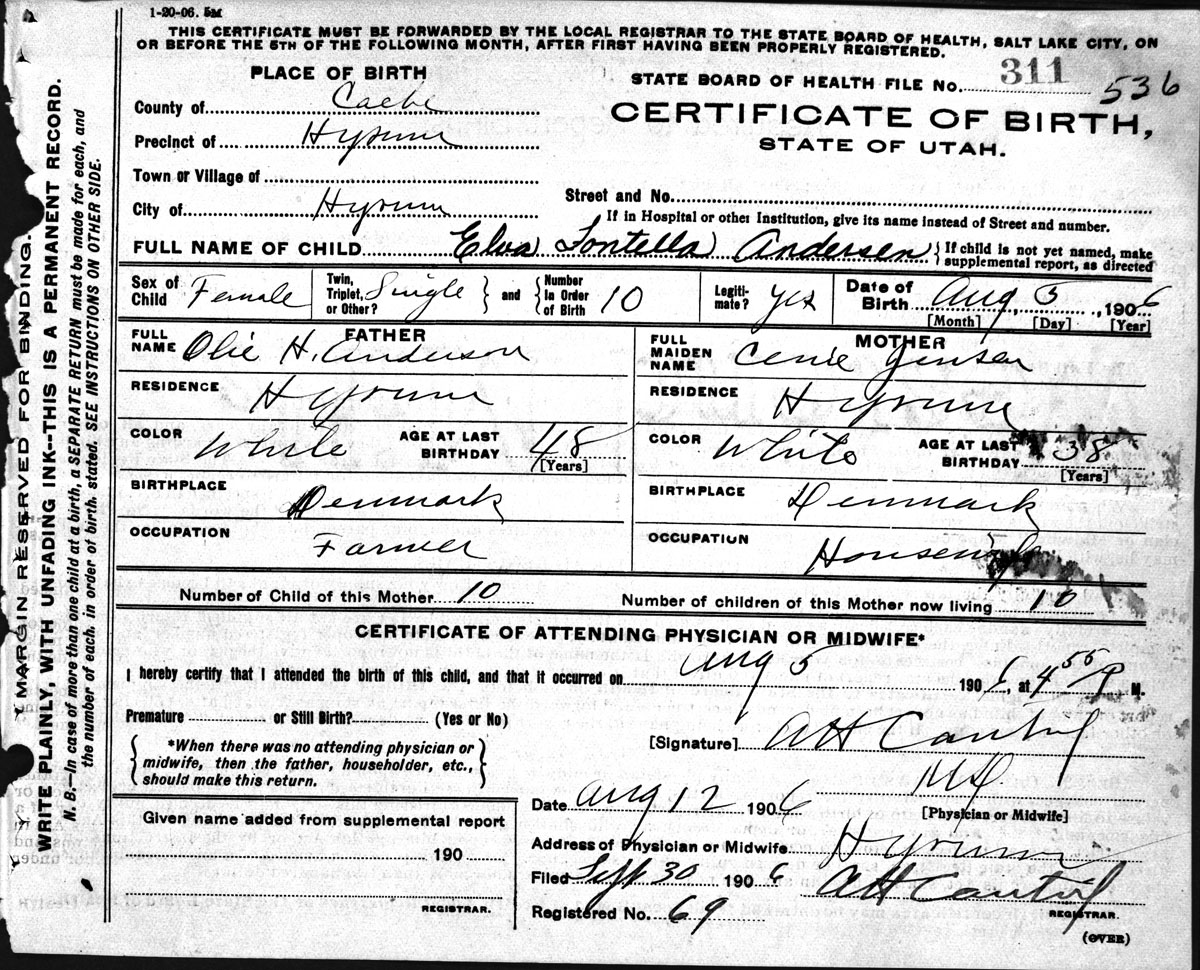 1-20-06. 5M
THIS CERTIFICATE MUST BE FORWARDED BY THE LOCAL REGISTRAR TO THE STATE BOARD OF HEALTH, SALT LAKE CITY, ON
OR BEFORE THE 5TH OF THE FOLLOWING MONTH, AFTER FIRST HAVING BEEN PROPERLY REGISTERED.
PLACE OF BIRTH
STATE BOARD OF HEALTH FILE No. 311 536
County of Cache
CERTIFICATE OF BIRTH,
Precinct of Hyrum
STATE OF UTAH.
Town or Village of
Street and No.
City of Hyrum
If in Hospital or other Institution, give its name instead of Street and number.
FULL NAME OF CHILD Elva Lontella Andersen { If child is not yet named, make
supplemental report, as directed
Sex of Child Female Twin, Triplet, or Other? Single } and { Number In Order of Birth 10 Legiti-mate? yes Date of Birth Aug 5, 1906
[Month] [Day] [Year]
FATHER
FULL NAME Olie H. Anderson
RESIDENCE Hyrum
COLOR White AGE AT LAST BIRTHDAY 48
[Years]
BIRTHPLACE Denmark
OCCUPATION Farmer
MOTHER
FULL MAIDEN NAME Cenie Jensen
RESIDENCE Hyrum
COLOR White AGE AT LAST BIRTHDAY 38
[Years]
BIRTHPLACE Denmark
OCCUPATION Housewife
Number of Child of this Mother 10 Number of children of this Mother now living 10
CERTIFICATE OF ATTENDING PHYSICIAN OR MIDWIFE*
I hereby certify that I attended the birth of this child, and that it occurred on Aug 5 1906, at 4 55 P M.
Premature or Still Birth? (Yes or No)
{ *When there was no attending physician or
midwife, then the father, householder, etc.,
should make this return. }
[Signature] AH Cantril
MD
[Physician or Midwife]
Date Aug 12 1906
Address of Physician or Midwife Hyrum
Filed Sept 30 1906 AH Cantril
REGISTRAR.
Registered No. 69
Given name added from supplemental report
190
REGISTRAR.
(OVER)
MARGIN RESERVED FOR BINDING.
WRITE PLAINLY, WITH UNFADING INK--THIS IS A PERMANENT RECORD.
N. B.—In case of more than one child at a birth, a SEPARATE RETURN must be made for each, and
the number of each, in order of birth, stated. SEE INSTRUCTIONS ON OTHER SIDE.